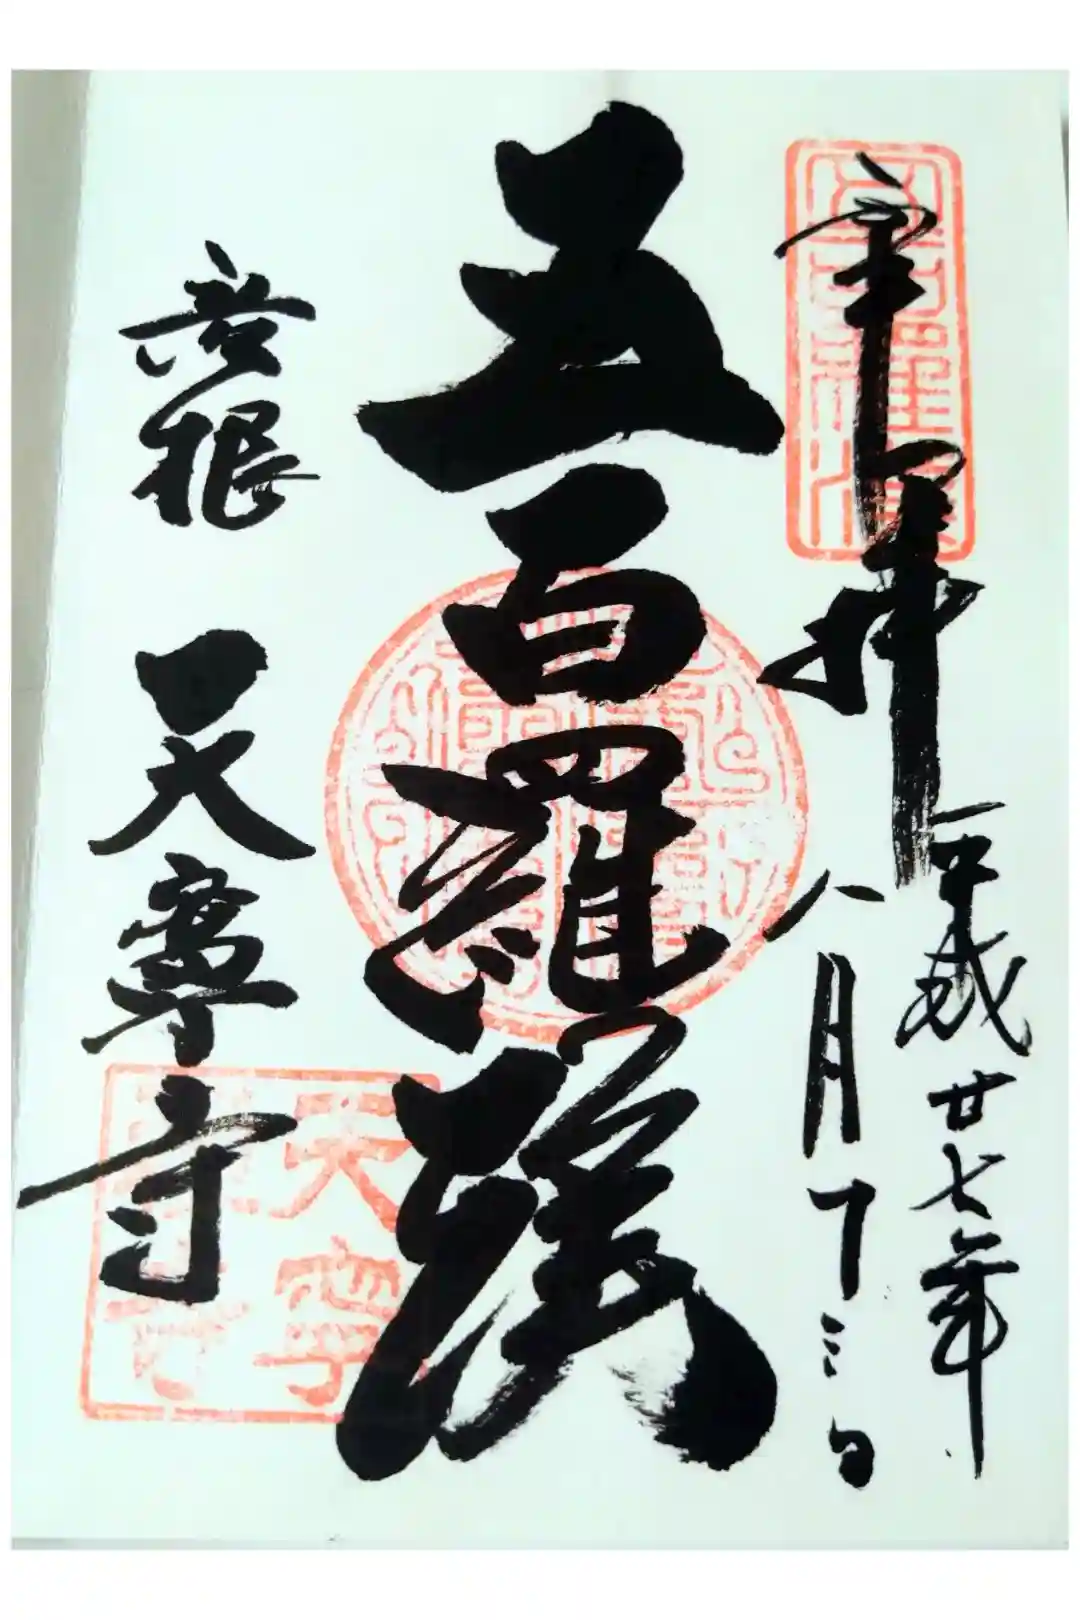 奉拝
平成廿七年
八月十三日
五百羅漢
彦根 天寧寺
天寧